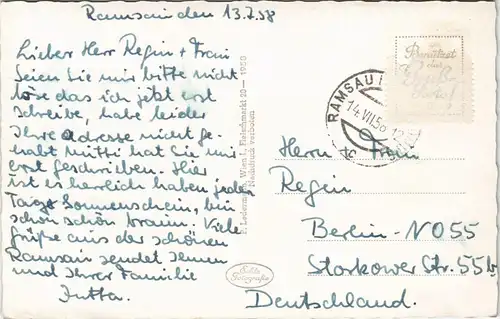 Ramsau den 13.7.58
Lieber Herr Regin + Frau
Seien Sie mir bitte nicht
böse das ich jetzt erst
schreibe, habe leider
Ihre Adresse nicht ge-
habt Mutti hat Sie mir
erst geschrieben. Hier
ist es herlich haben jeden
Tag Sonnenschein, bin
schön schön braun. Viele
grüße aus der schönen
Ramsau sendet Ihnen
und Ihrer Familie
Jutta.
P. Ledermann, Wien I., Fleischmarkt 20 — 1959
Nachdruck verboten
Echte
Fotografie
Benützet
die
RAMSAU
14.VII.58
Herrn + Frau
Regin
Berlin-NO55
Storkower Str. 55b
Deutschland.